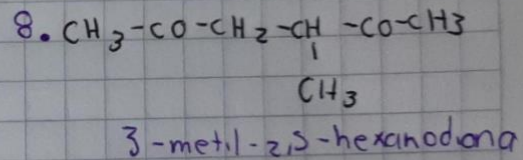 8. CH3-CO-CH2-CH-CO-CH3
CH3
3-metil-2,5-hexanodiona